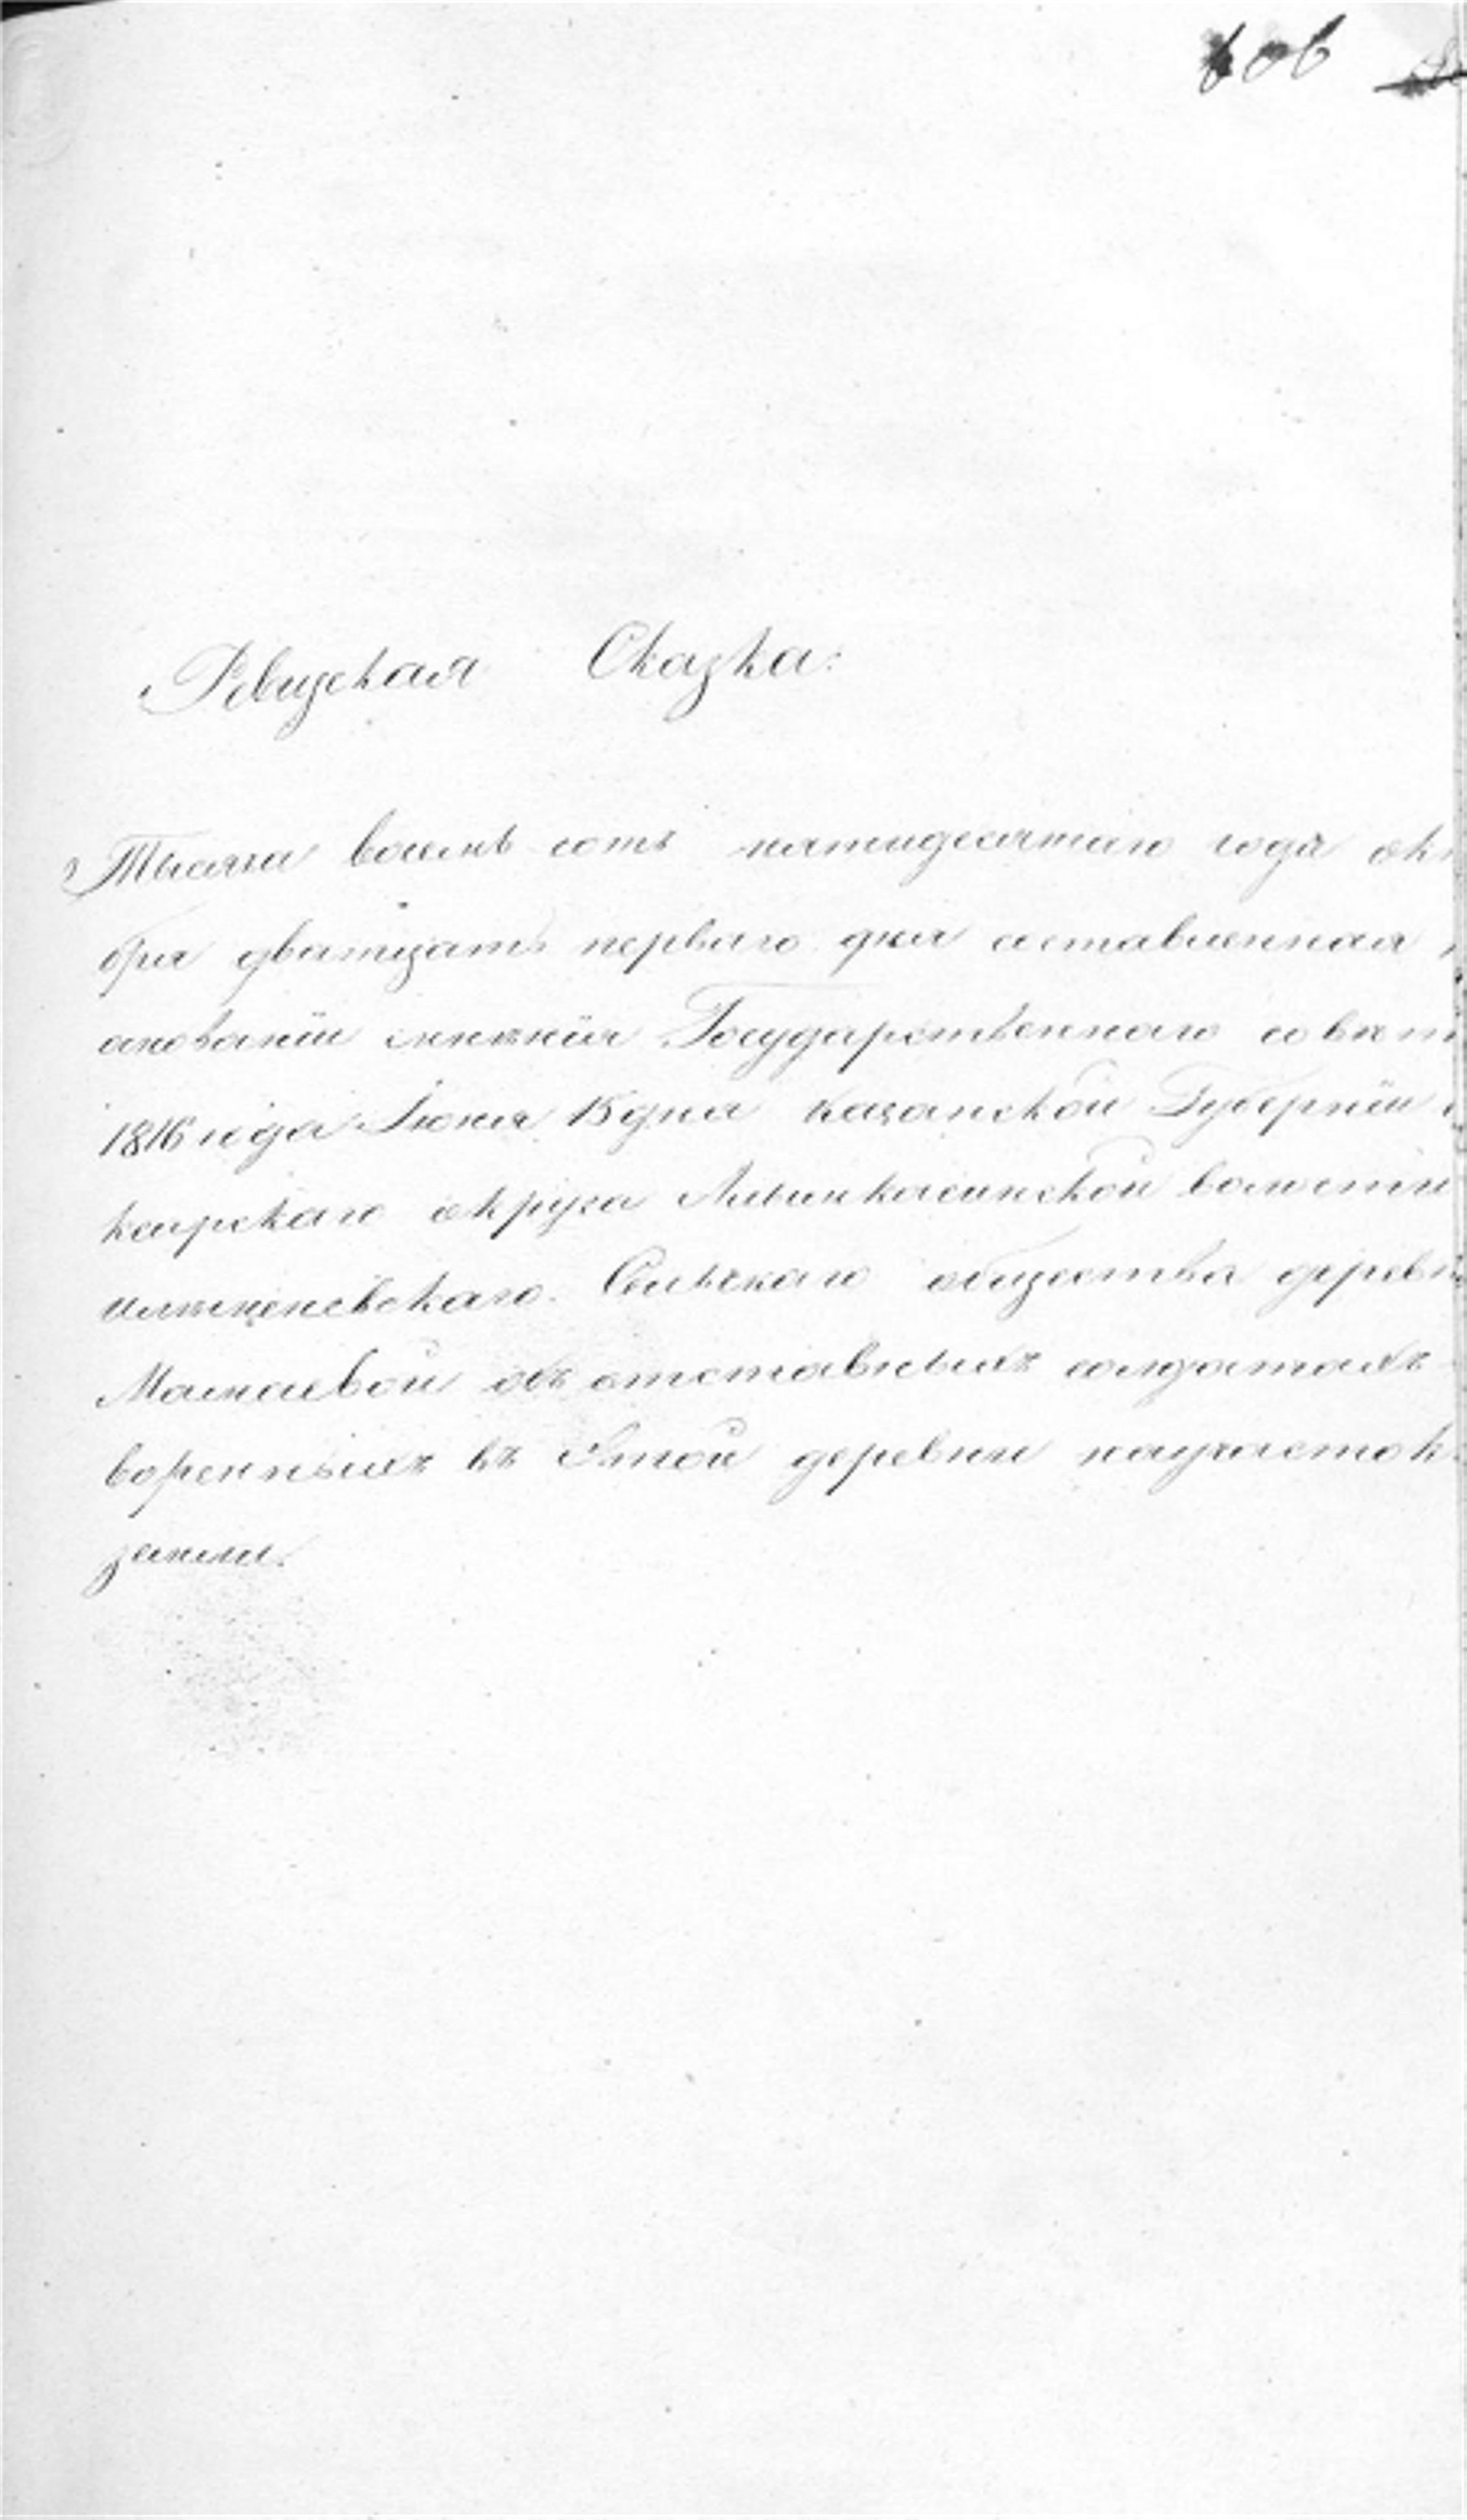 606
Ревизская Сказка:
Тысяча восемь сотъ пятидесятаго года ок
бря дватцать перваго дня составленная
сновании мнѣнія Государственнаго совѣт
1816 года Іюня 15 дня Казанской Губерніи
ксарскаго округа волости
Сельскаго общества деревн
Мамаевой объ отставныхъ солдатахъ
воренныхъ въ Этой деревни научасток
земли.